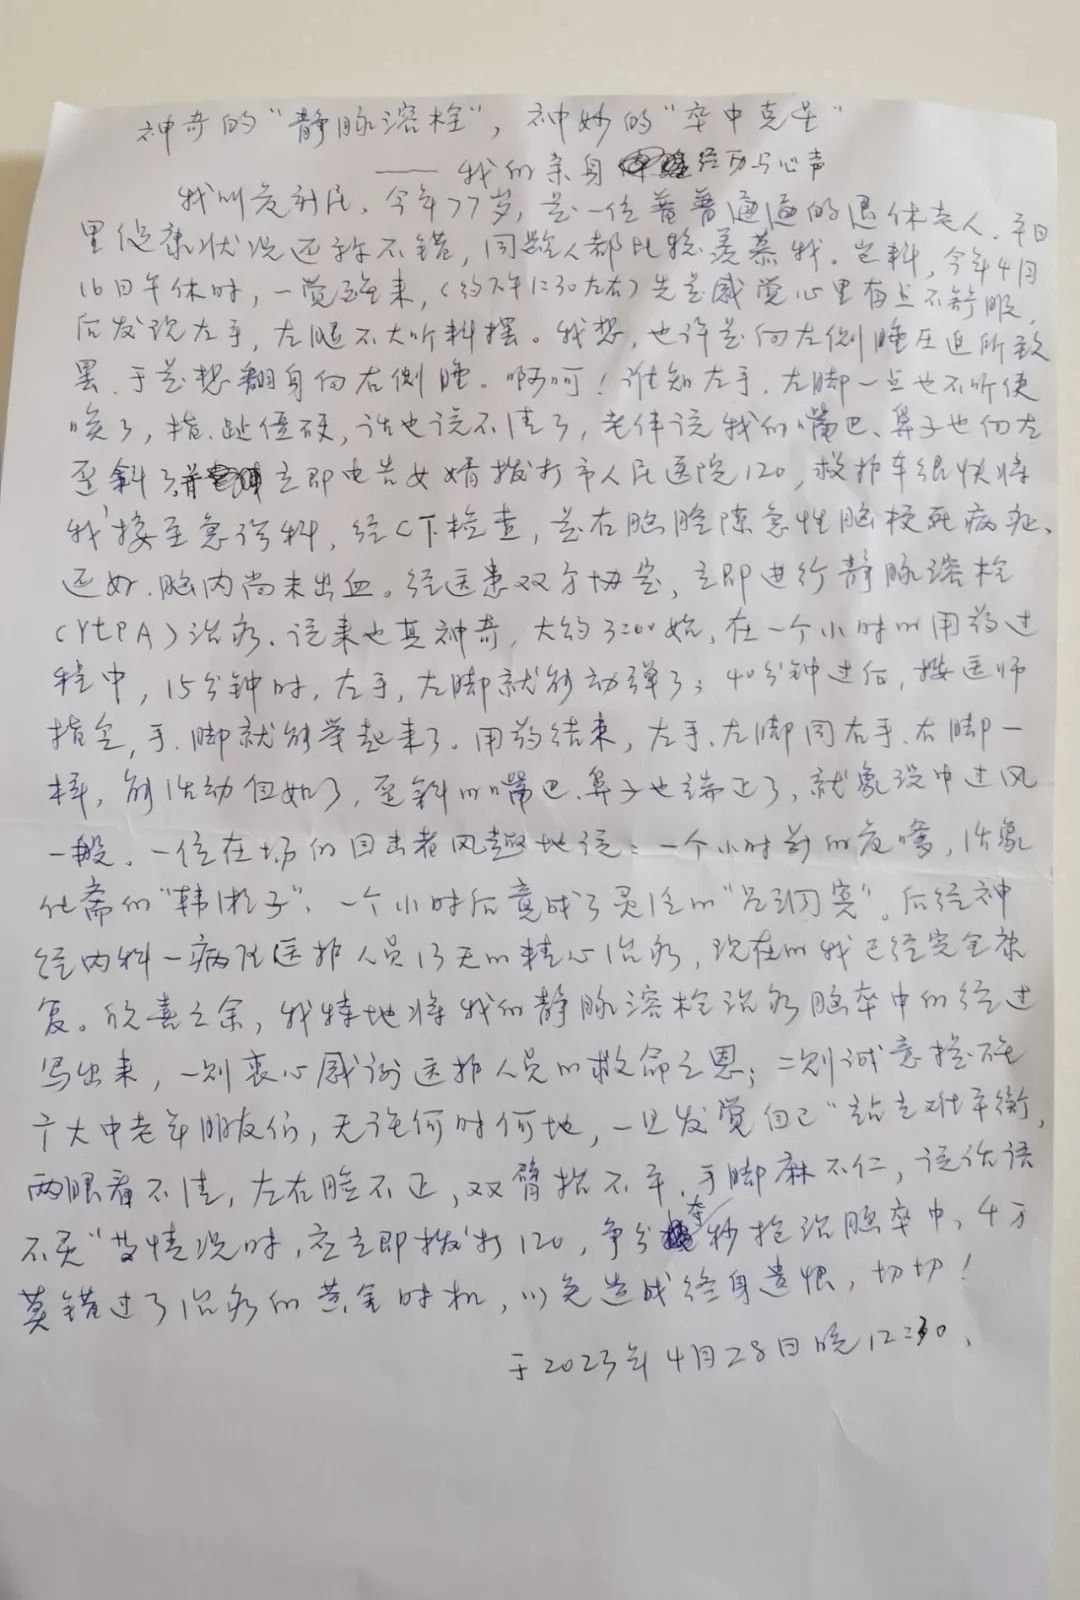 神奇的“静脉溶栓”，神妙的“卒中克星”
——我的亲身经历与心声
我叫，今年77岁，是一位普普通通的退休老人。平日
里健康状况还称不错，同龄人都比较羡慕我。岂料，今年4月
16日午休时，一觉醒来，（约下午12:30左右）先是感觉心里有点不舒服，
后发现左手，左腿不大听料摆。我想，也许是向左侧睡压迫所致
罢，于是想翻身向右侧睡。啊呵！谁知左手、左脚一点也不听使
唤了，指、趾僵硬，话也说不清了，老伴说我的嘴巴、鼻子也向左
歪斜了，立即电告女婿拨打市人民医院120，救护车很快将
我接至急诊科，经CT检查，是右脑腔隙急性脑梗死病症、
还好，脑内尚未出血。经医患双方协定，立即进行静脉溶栓
（rtPA）治疗。说来也真神奇，大约3:00始，在一个小时的用药过
程中，15分钟时，左手，左脚就能动弹了；40分钟过后，按医师
指令，手、脚就能举起来了。用药结束，左手、左脚同右手、右脚一
样，能活动自如了，歪斜的嘴巴、鼻子也端正了，就象没中过风
一般。一位在场的目击者风趣地说：一个小时前的爹，活象
化斋的“韩湘子”、一个小时后竟成了灵活的“吕洞宾”。后经神
经内科一病区医护人员13天的精心治疗，现在的我已经完全康
复。欣喜之余，我特地将我的静脉溶栓治疗脑卒中的经过
写出来，一则衷心感谢医护人员的救命之恩；二则诚意提醒
广大中老年朋友们，无论何时何地，一旦发觉自己“站立难平衡，
两眼看不清，左右脸不正，双臂抬不平，手脚麻不仁，说话语
不灵”等情况时，应立即拨打120，争分夺秒抢治脑卒中，千万
莫错过了治疗的黄金时机，以免造成终身遗恨，切切！
于2023年4月28日晚12:30，